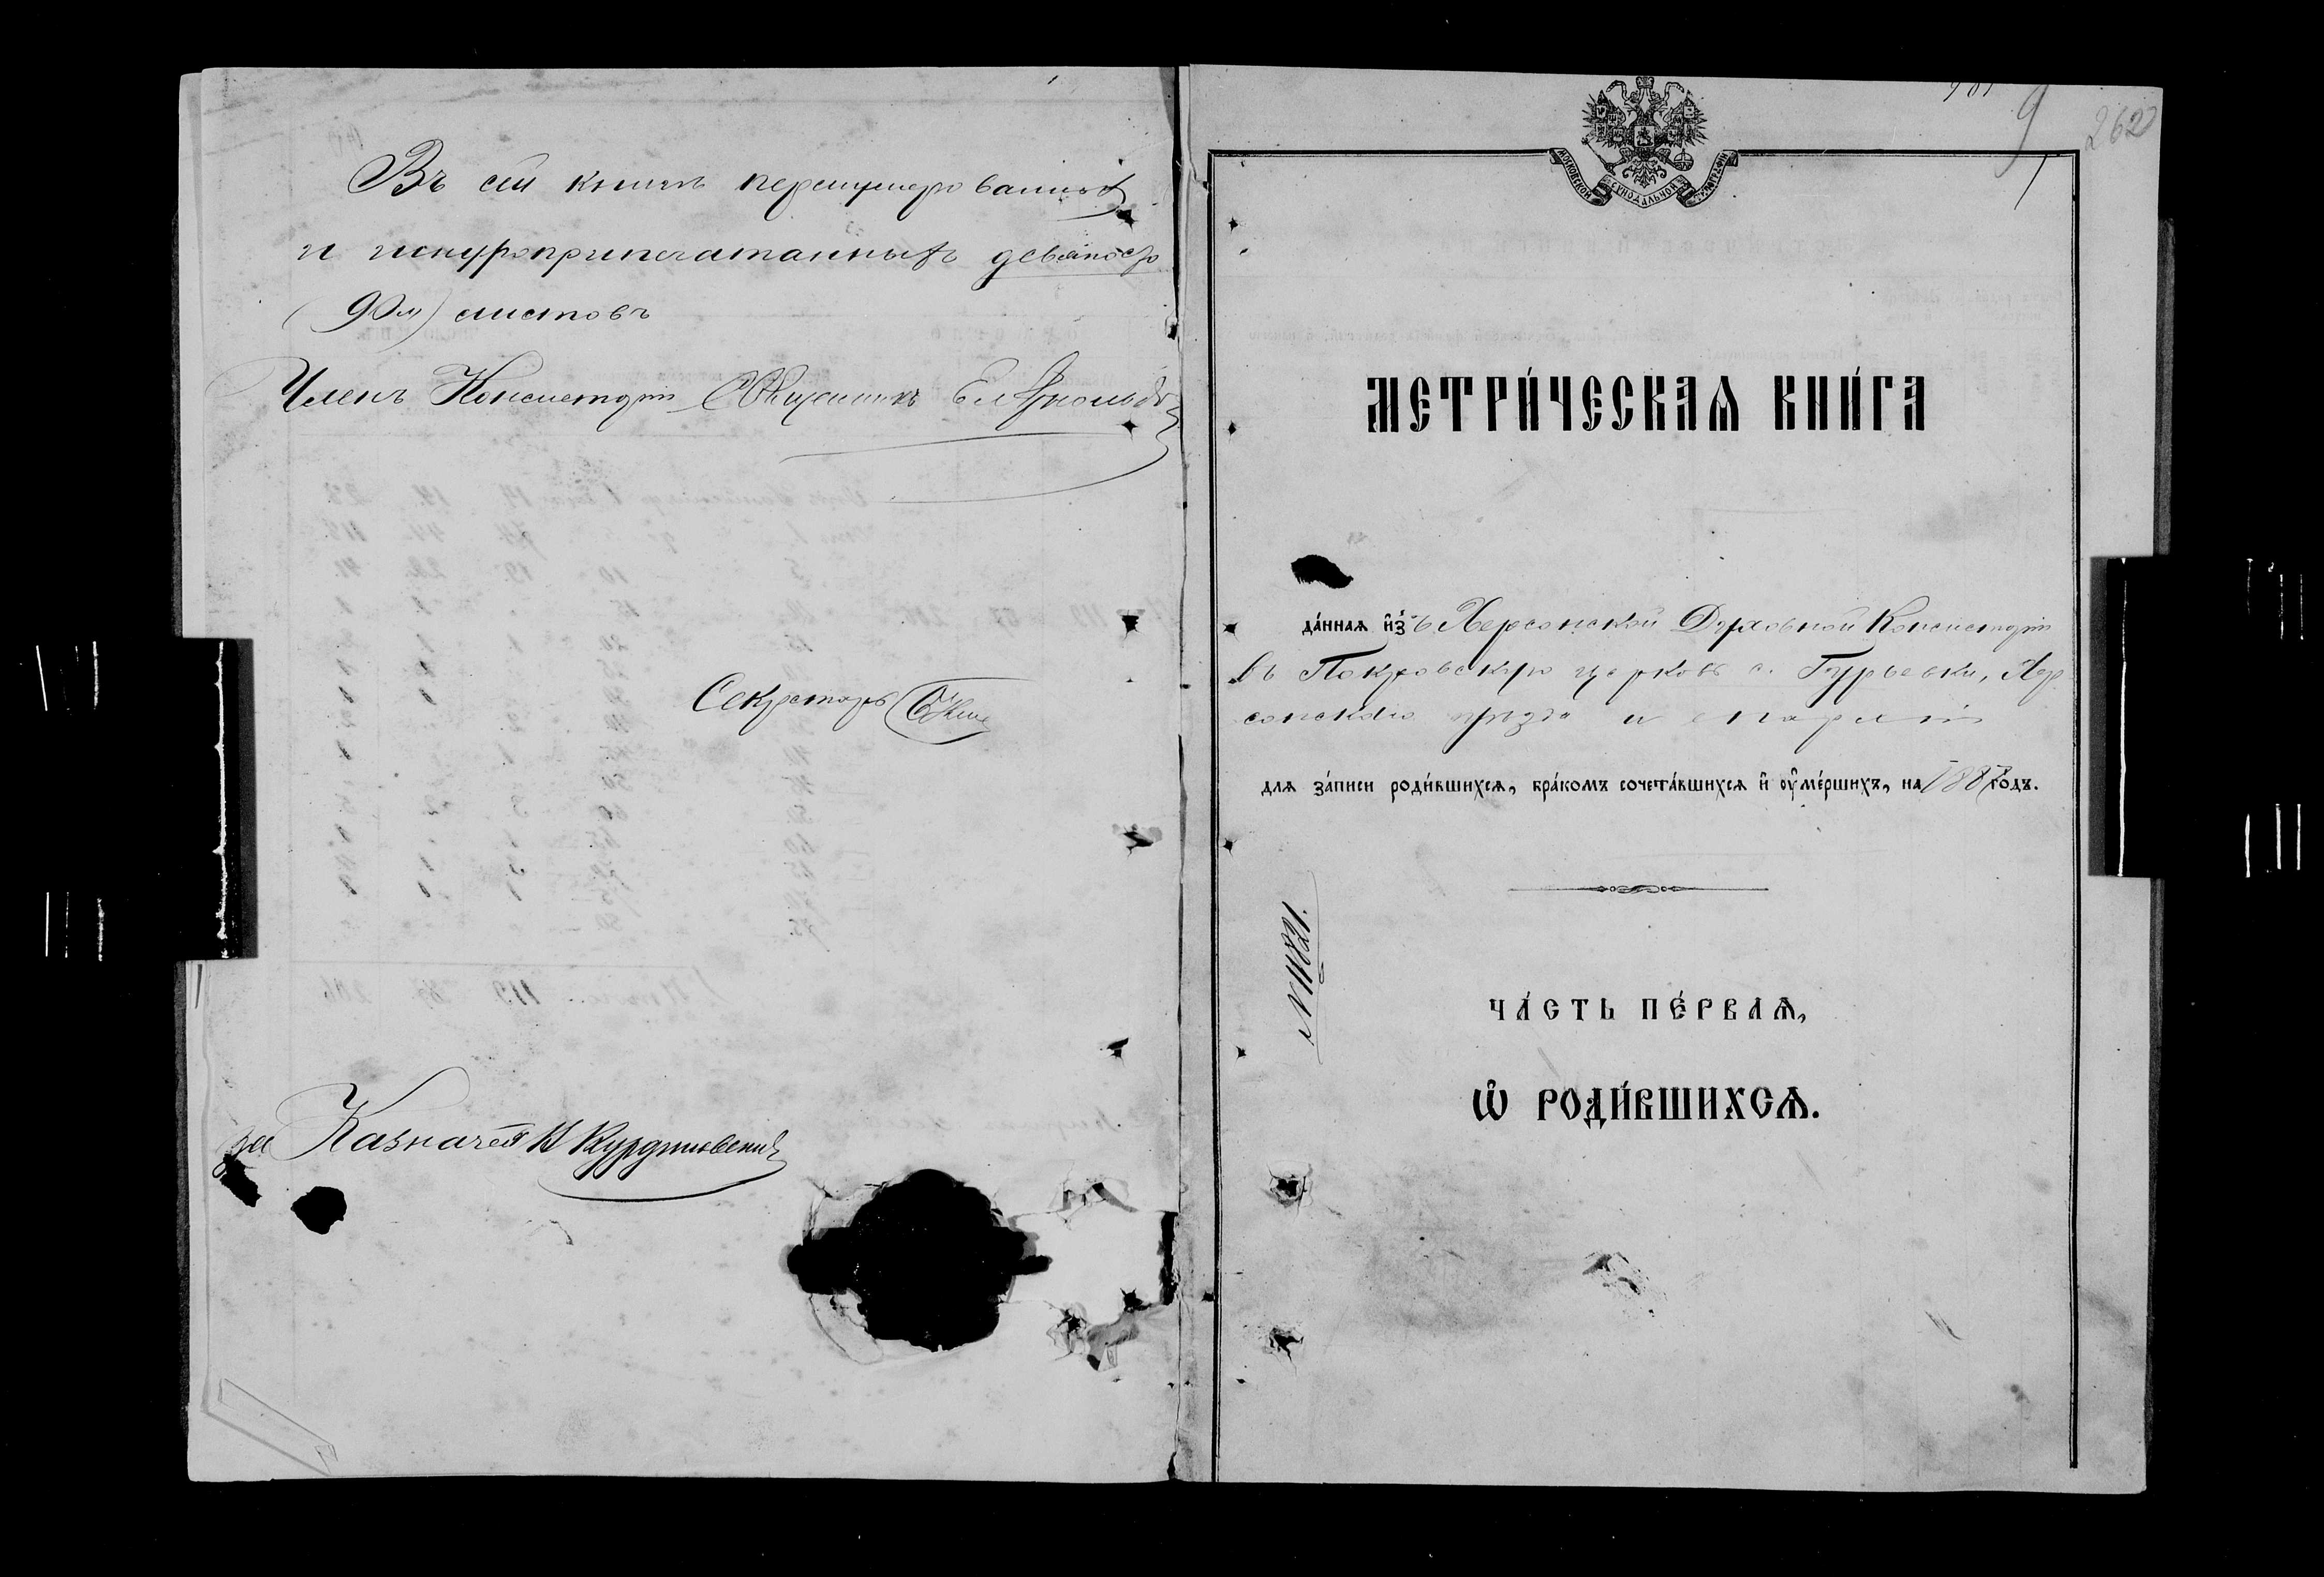 Въ сей книгѣ перенумерованныхъ
и шнуроприпечатанныхъ девяносто
(90 л) листовъ
Членъ Консисторіи Священникъ
Секретарь
за Казначея Н
901
9
262
МОСКОВСКОЙ СѴНОДАЛЬНОЙ ТИПОГРАФІИ
МЕТРИ́ЧЕСКАѦ КНИ́ГА
да́ннаѧ и҆зъ Херсонской Духовной Консисторіи
въ Покровскую церковь с. Гурьевки, Хер
сонскаго уѣзда и епархіи
длѧ за́писи роди́вшихсѧ, бра́комъ сочета́вшихсѧ и҆ ᲂу҆ме́ршихъ, на 1887 го́дъ.
№ 11821.
ЧА́СТЬ ПЕ́РВАѦ,
Ѽ РОДИ́ВШИХСѦ.